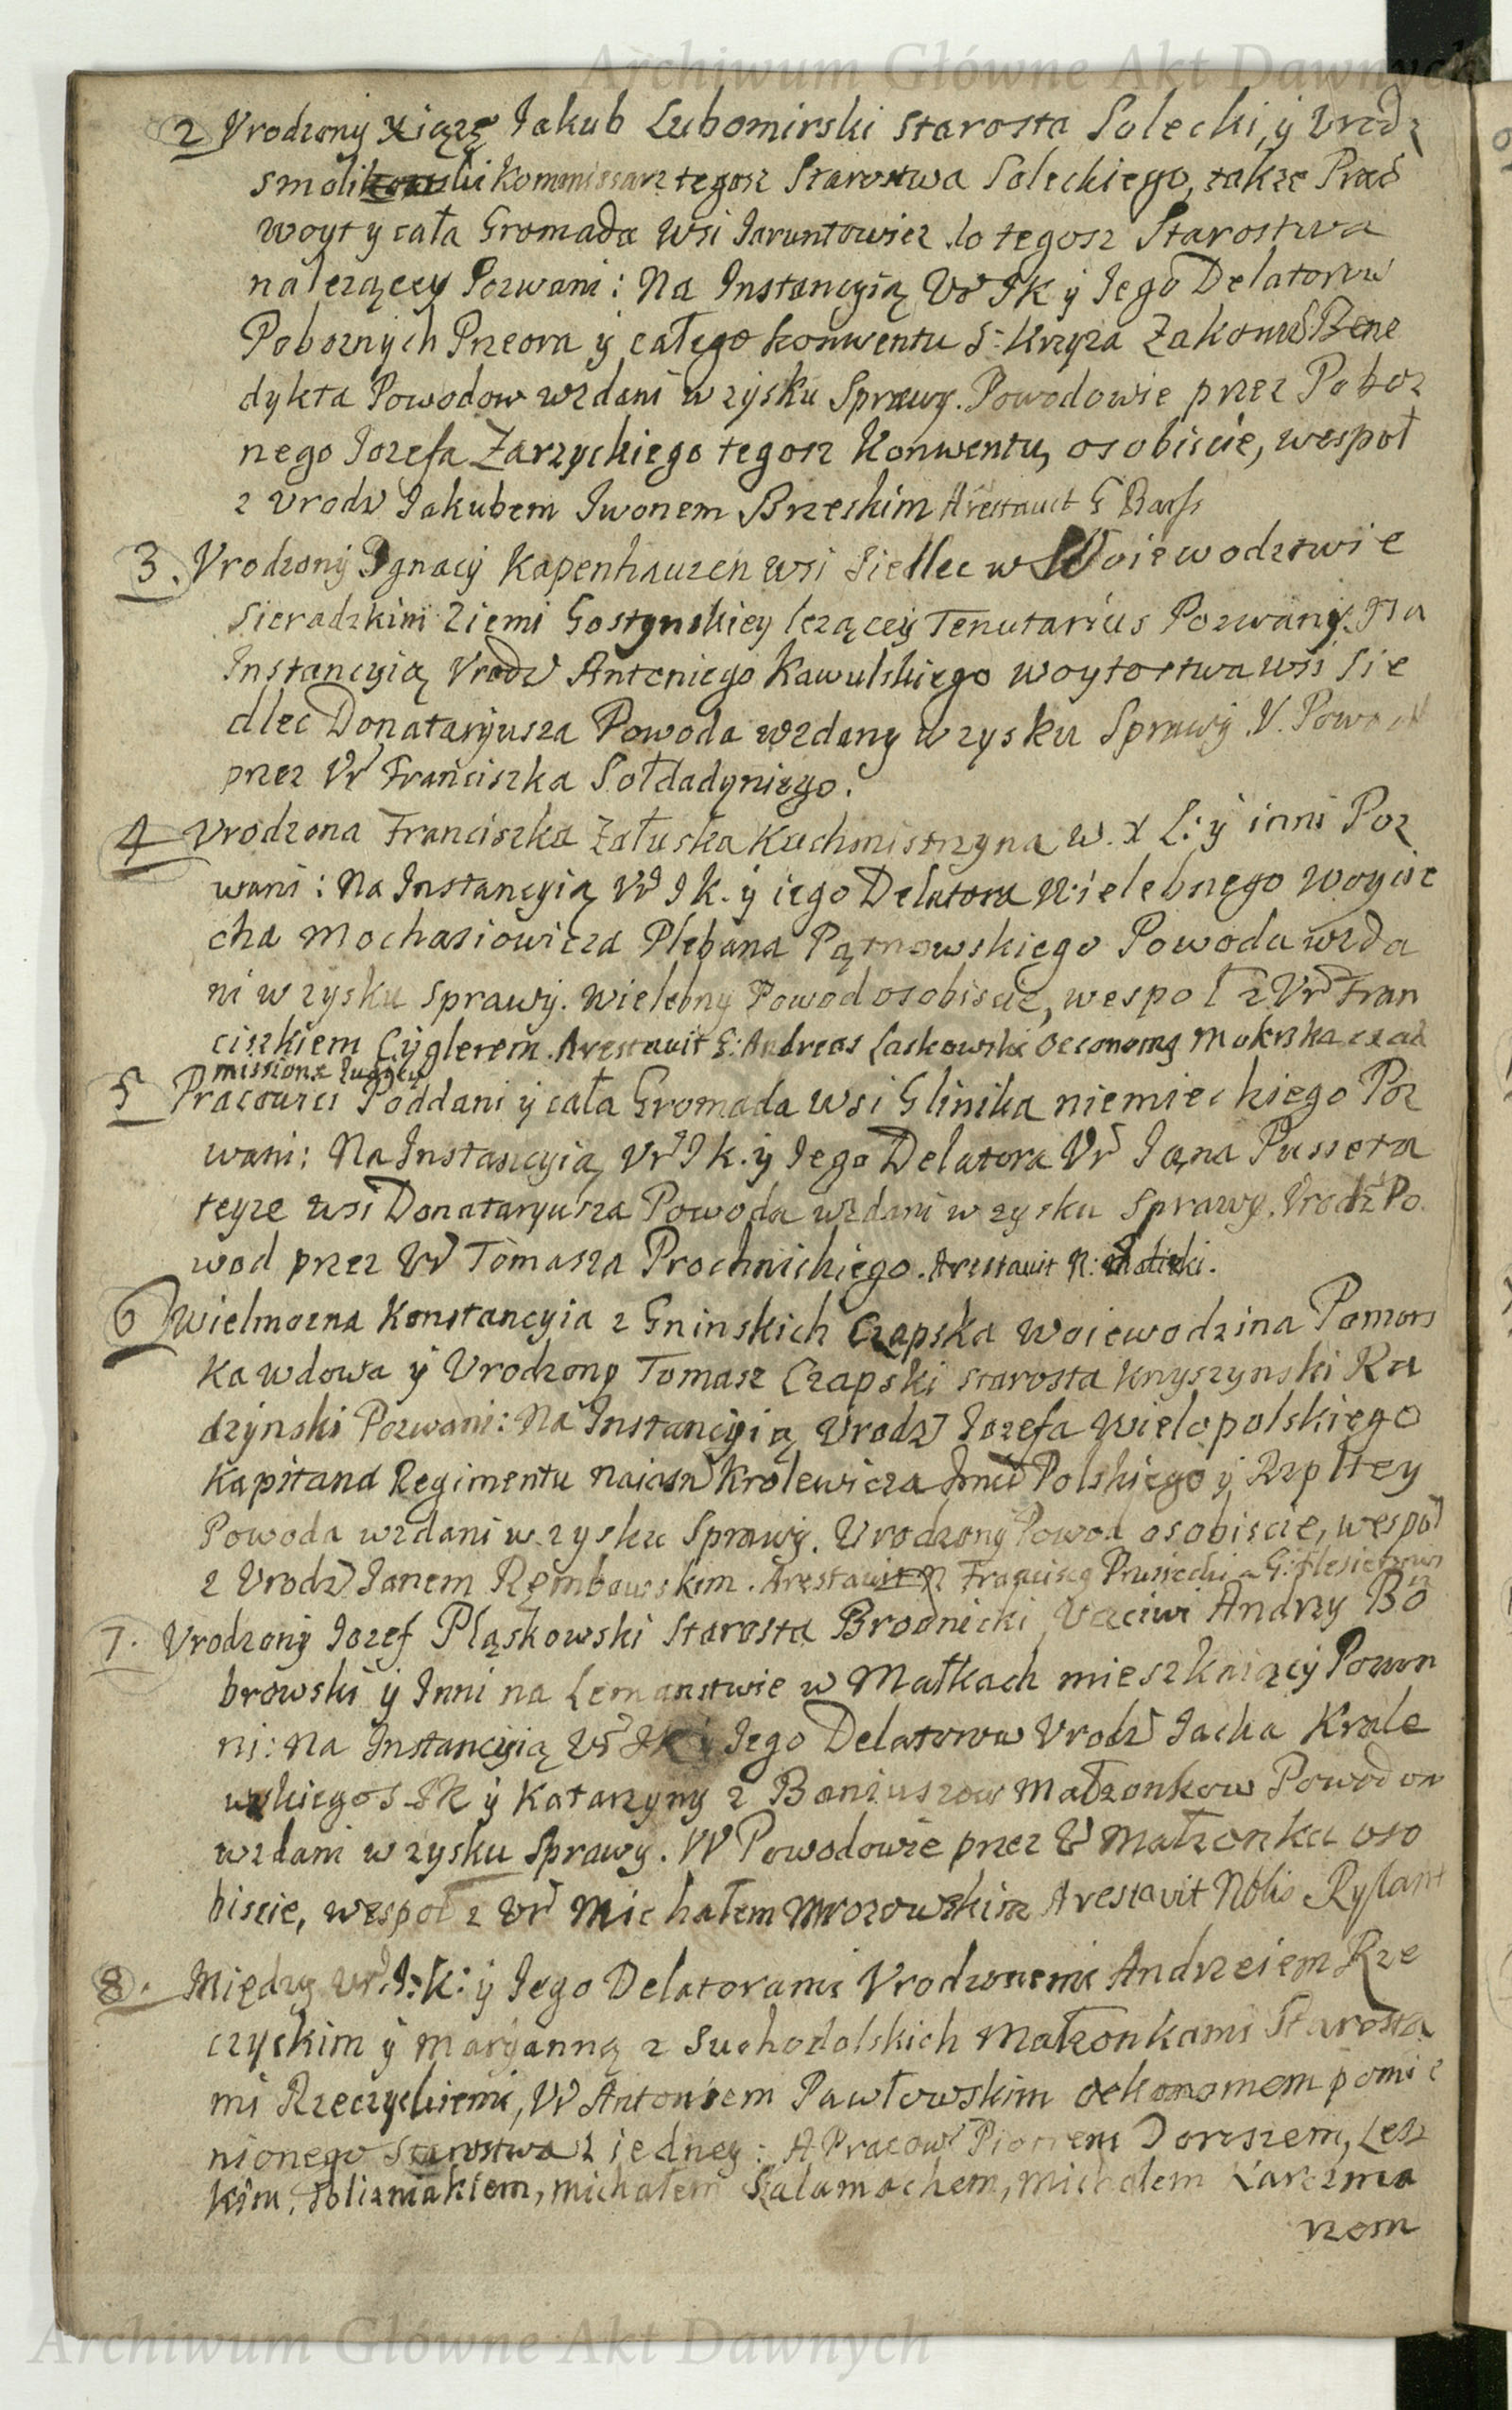 Archiwum Główne Akt Dawnych
2 Vrodzony Xiąże Jakub Lubomirski Starosta Solecki, ÿ Vrodz
Kommissarz tegosz Starostwa Soleckiego, takze Prac
woyt y cała Gromada wsi Jaruntowicz do tegosz Starostwa
nalezącey Pozwani: Na Instancyią Vr JK y Jego Delatorow
Poboznych Przeora ÿ całego Konwentu S: Krzyza Zakonu S Bene
dykta Powodow wzdani w zysku Sprawy. Powodowie przez Poboz
nego Jozefa Zarzyckiego tegosz Konwentu, osobiscie, wespoł
z Vrodz Jakubem Jwonem Brzeskim Arestavit G
3. Vrodzony Jgnacy Kapenhauzen wsi Siedlec w Woiewodztwie
Sieradzkim Ziemi Gostynskiey lezącey Tenutarius Pozwany. Na
Instancyią Vrodz Antoniego Kawulskiego woytostwa wsi Sie
dlec Donataryusza Powoda wzdany w zysku Sprawy. V. Powod
przez Vr Franciszka Sołdadyniego.
4 Vrodzona Franciszka Załuska Kuchmistrzyna w. X L: ÿ inni Poz
wani: Na Instancyią Vr J K. ÿ iego Delatora Wielebnego Woycie
cha Plebana Powoda wzda
ni w zysku Sprawy. Wielebny Powod osobiscie, wespoł z Vr Fran
ciszkiem Cyglerem. Arestavit G: Andreas Laskowski Oeconomg
missione
5 Pracowici Poddani ÿ cała Gromada wsi Glinika niemieckiego Poz
wani: Na Instancyią Vr J K. ÿ Jego Delatora Vr Jana Pusseta
teyze wsi Donataryusza Powoda wzdani w zysku Sprawy. Vrodz Po
wod przez Vr Tomasza Prochnickiego. Arestavit N:
6 Wielmozna Konstancyia z Gninskich Czapska Woiewodzina Pomors
ka wdowa ÿ Vrodzony Tomasz Czapski Starosta Knyszynski Ra
dzynski Pozwani: Na Instancyią Vrodz Jozefa Wielopolskiego
Kapitana Regimentu Naiasn Krolewicza Jmci Polskiego ÿ Rzpltey
Powoda wzdani w zysku Sprawy. Vrodzony Powod osobiscie, wespoł
z Vrodz Janem Rembowskim. Arestavit N Franciscg
7. Vrodzony Jozef Pląskowski Starosta Brodnicki, Vczciwi Andrzy Bo
browski ÿ Inni na Lemanstwie w Małkach mieszkaiący Pozwa
ni: Na Instancyią Vr JK ÿ Jego Delatorow Vrodz Jacka Krale
wskiego S JK ÿ Katarzyny z Małzonkow Powodow
wzdani w zysku Sprawy. VV Powodowie przez V Małzonka oso
biscie, wespoł z Vr Michałem Mrozowskim Arestavit Nblis
8. Między Vr J: K: ÿ Jego Delatorami Vrodzonemi Andrzeiem Rze
czyckim ÿ Maryanną z Suchodolskich Małzonkami Starosta
mi Rzeczyckiemi, Vr Antoniem Pawłowskim oekonomem pomie
nionego Starostwa z iedney: A Pracow Piotrem Doroszem, Lesz
kim, Michałem Szalamachem, Michałem Karczma
rzem
Archiwum Główne Akt Dawnych